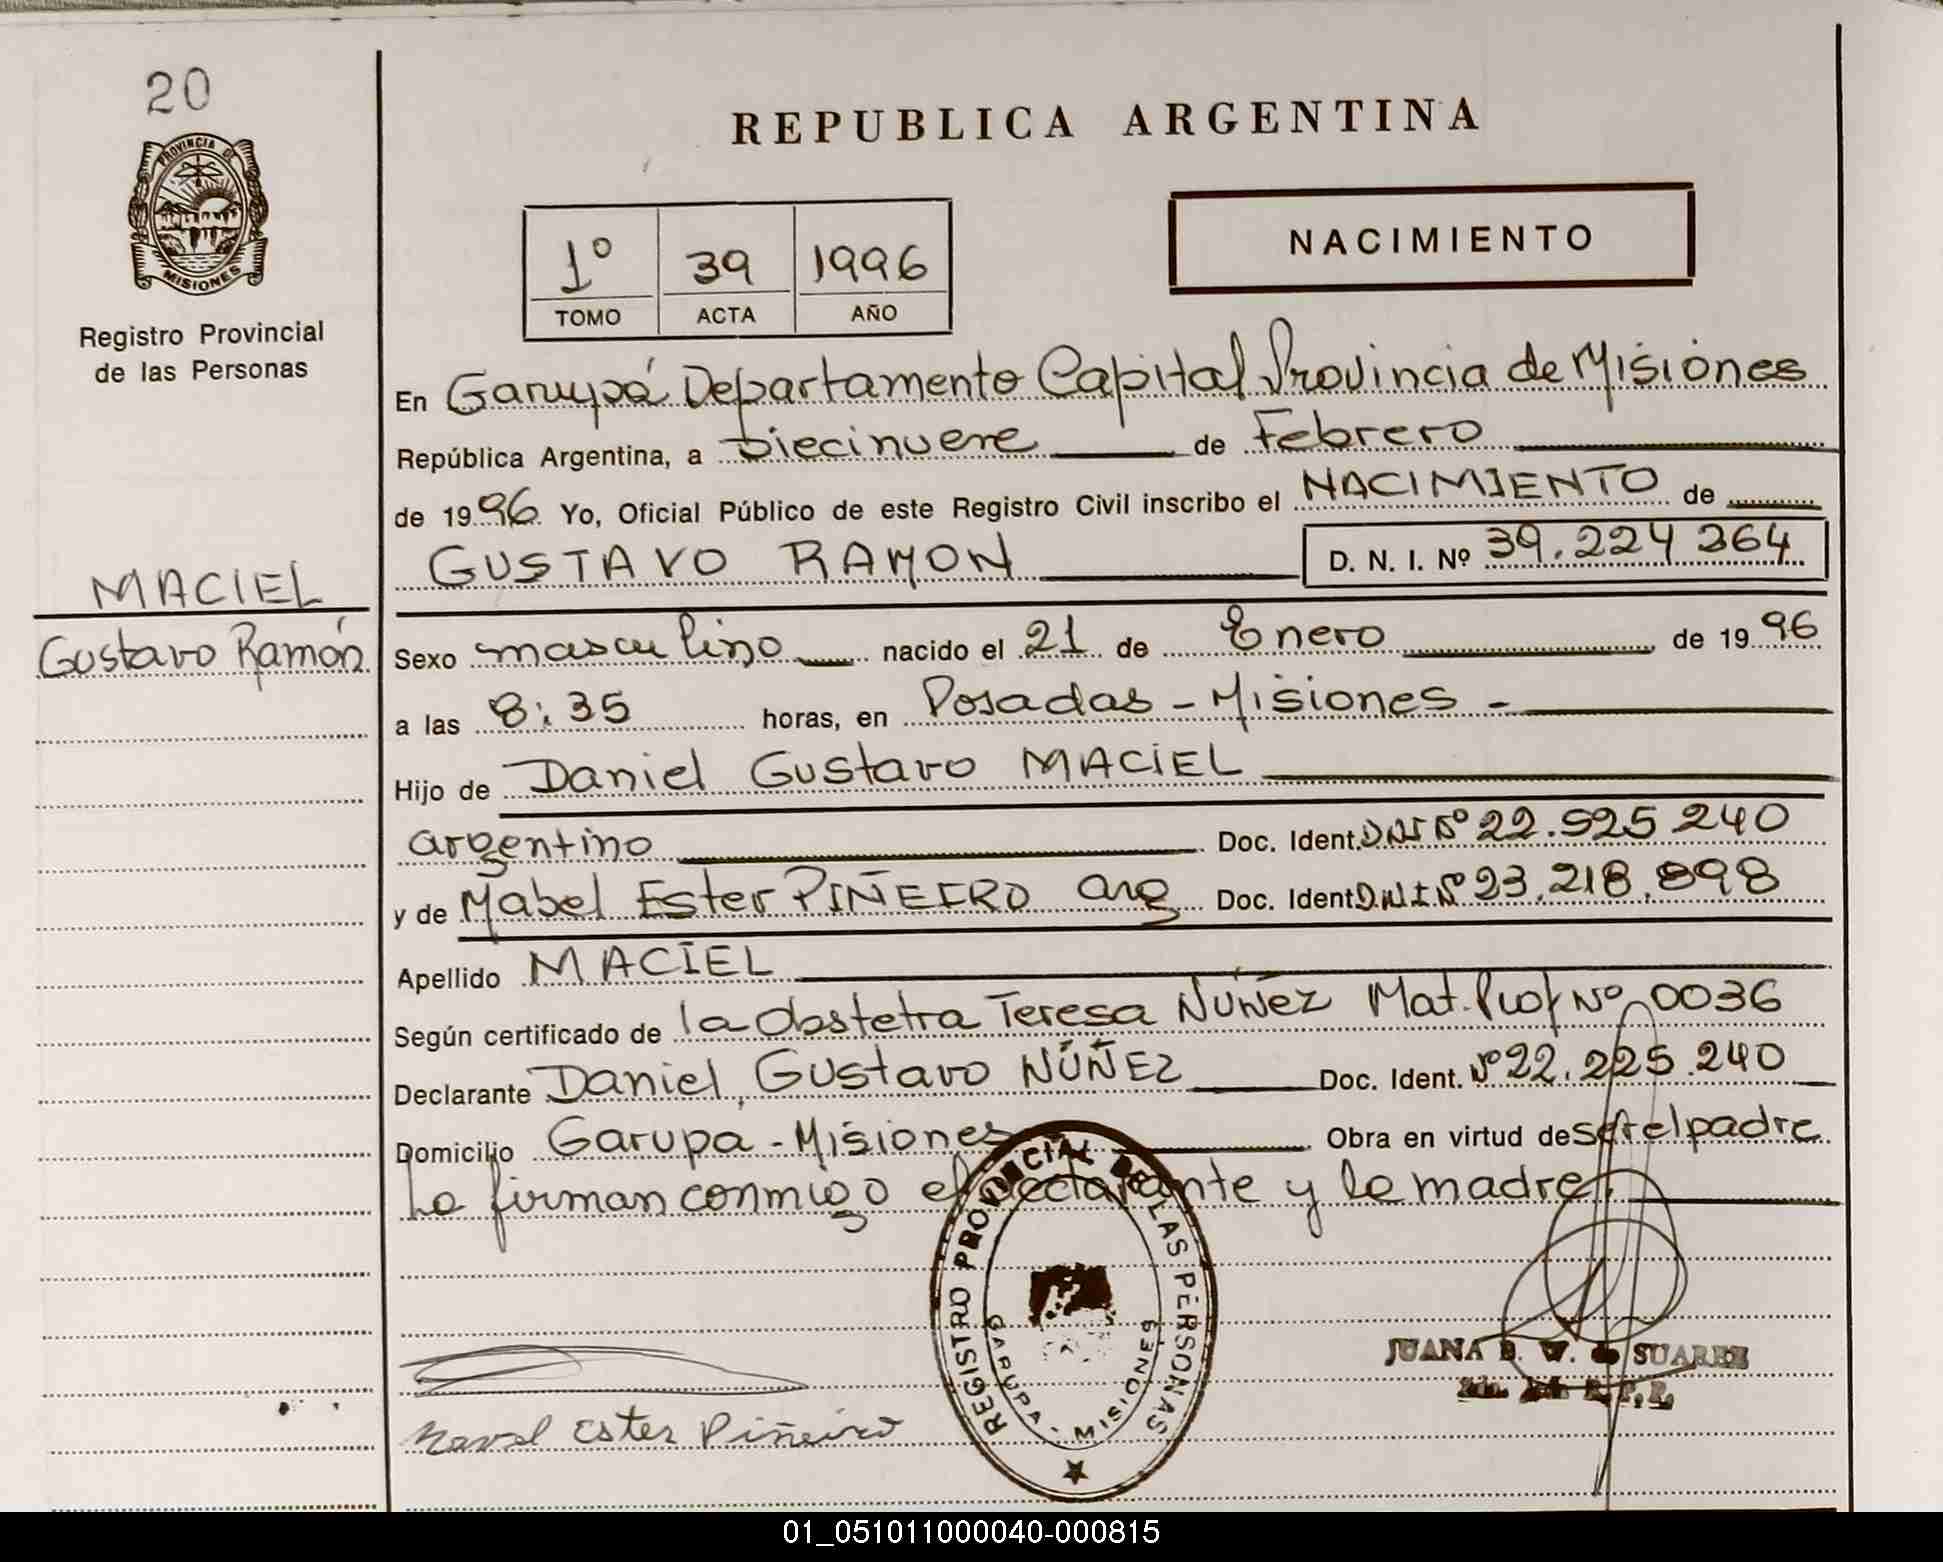 20
PROVINCIA DE
MISIONES
Registro Provincial
de las Personas
MACIEL
Gustavo Ramón
REPUBLICA ARGENTINA
1º 39 1996
TOMO ACTA AÑO
NACIMIENTO
En Garupá Departamento Capital Provincia de Misiones
República Argentina, a Diecinueve de Febrero
de 1996 Yo, Oficial Público de este Registro Civil inscribo el NACIMIENTO de
GUSTAVO RAMON D. N. I. Nº 39.224 264
Sexo masculino nacido el 21 de Enero de 1996
a las 8:35 horas, en Posadas - Misiones -
Hijo de Daniel Gustavo MACIEL
argentino Doc. Ident. DNI Nº 22.525 240
y de Mabel Ester PIÑEIRO arg Doc. Ident D.N.I Nº 23.218.898
Apellido MACIEL
Según certificado de la obstetra Teresa NÚÑEZ Mat. Prof Nº 0036
Declarante Daniel, Gustavo NÚÑEZ Doc. Ident. Nº 22.225.240
Domicilio Garupa - Misiones Obra en virtud de ser el padre
La firman conmigo el declarante y la madre
REGISTRO PROVINCIAL DE LAS PERSONAS
GARUPA - MISIONES
JUANA W. SUAREZ
Ester Piñeiro
01_051011000040-000815